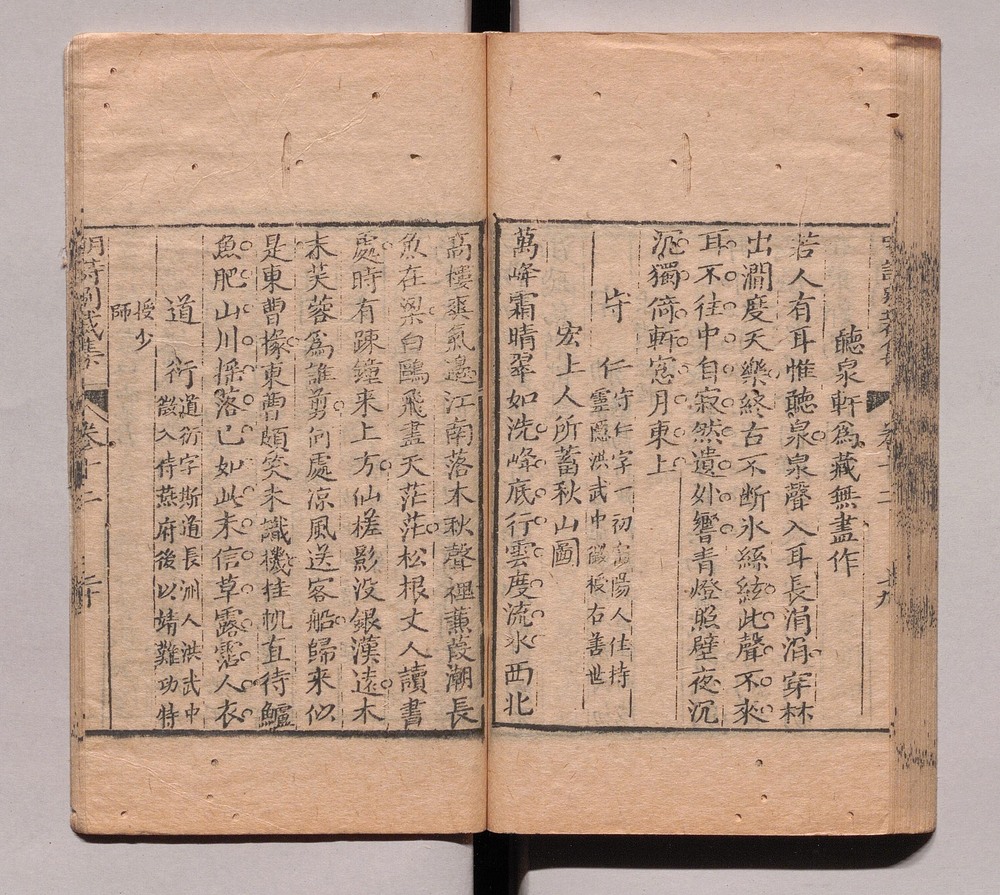 聽泉軒爲藏無盡作
若人有耳惟聽泉泉聲入耳長涓涓穿林
出澗度天樂終古不断氷絲絃此聲不來
耳不往中自寂然遺外響青燈照壁夜沉
沉獨倚軒窓月東上
守仁
守仁字一初富陽人住持
靈隱洪武中徵授右善世
宏上人所蓄秋山圖
萬峰霜晴翠如洗峰底行雲度流水西北
高樓爽氣邊江南落木秋聲裡蒹葭潮長
魚在梁白鷗飛盡天茫茫松根丈人讀書
處時有疎鐘来上方仙槎影没銀漢遠木
末芙蓉爲誰剪何處涼風送客船歸来似
是東曹掾東曹頗笑未識機挂帆直待鱸
魚肥山川揺落已如此未信草露霑人衣
道衍
道衍字斯道長洲人洪武中
徵入侍燕府後以靖難功特
授少
師
卷十二